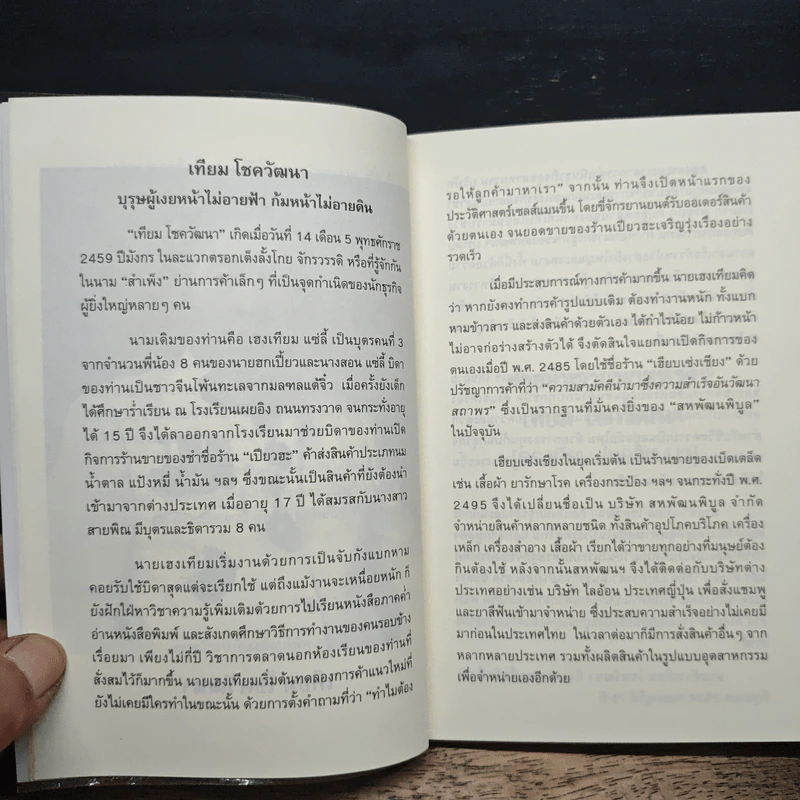 เทียม โชควัฒนา
บุรุษผู้เงยหน้าไม่อายฟ้า ก้มหน้าไม่อายดิน
"เทียม โชควัฒนา" เกิดเมื่อวันที่ 14 เดือน 5 พุทธศักราช
2459 ปีมังกร ในละแวกตรอกเต็งลั้งโกย จักรวรรดิ หรือที่รู้จักกัน
ในนาม "สำเพ็ง" ย่านการค้าเล็กๆ ที่เป็นจุดกำเนิดของนักธุรกิจ
ผู้ยิ่งใหญ่หลายๆ คน
นามเดิมของท่านคือ เฮงเทียม แซ่ลี้ เป็นบุตรคนที่ 3
จากจำนวนพี่น้อง 8 คนของนายฮกเปี้ยวและนางสอน แซ่ลี้ บิดา
ของท่านเป็นชาวจีนโพ้นทะเลจากมลฑลแต้จิ๋ว เมื่อครั้งยังเด็ก
ได้ศึกษาร่ำเรียน ณ โรงเรียนเผยอิง ถนนทรงวาด จนกระทั่งอายุ
ได้ 15 ปี จึงได้ลาออกจากโรงเรียนมาช่วยบิดาของท่านเปิด
กิจการร้านขายของชำชื่อร้าน "เปียวฮะ" ค้าส่งสินค้าประเภทนม
น้ำตาล แป้งหมี่ น้ำมัน ฯลฯ ซึ่งขณะนั้นเป็นสินค้าที่ยังต้องนำ
เข้ามาจากต่างประเทศ เมื่ออายุ 17 ปี ได้สมรสกับนางสาว
สายพิณ มีบุตรและธิดารวม 8 คน
นายเฮงเทียมเริ่มงานด้วยการเป็นจับกังแบกหาม
คอยรับใช้บิดาสุดแต่จะเรียกใช้ แต่ถึงแม้งานจะเหนื่อยหนัก ก็
ยังฝักใฝ่หาวิชาความรู้เพิ่มเติมด้วยการไปเรียนหนังสือภาคค่ำ
อ่านหนังสือพิมพ์ และสังเกตศึกษาวิธีการทำงานของคนรอบข้าง
เรื่อยมา เพียงไม่กี่ปี วิชาการตลาดนอกห้องเรียนของท่านที่
สั่งสมไว้ก็มากขึ้น นายเฮงเทียมเริ่มต้นทดลองการค้าแนวใหม่ที่
ยังไม่เคยมีใครทำในขณะนั้น ด้วยการตั้งคำถามที่ว่า "ทำไมต้อง
รอให้ลูกค้ามาหาเรา" จากนั้น ท่านจึงเปิดหน้าแรกของ
ประวัติศาสตร์เซลส์แมนขึ้น โดยขี่จักรยานยนต์รับออเดอร์สินค้า
ด้วยตนเอง จนยอดขายของร้านเปียวฮะเจริญรุ่งเรืองอย่าง
รวดเร็ว
เมื่อมีประสบการณ์ทางการค้ามากขึ้น นายเฮงเทียมคิด
ว่า หากยังคงทำการค้ารูปแบบเดิม ต้องทำงานหนัก ทั้งแบก
หามข้าวสาร และส่งสินค้าด้วยตัวเอง ได้กำไรน้อย ไม่ก้าวหน้า
ไม่อาจก่อร่างสร้างตัวได้ จึงตัดสินใจแยกมาเปิดกิจการของ
ตนเองเมื่อปี พ.ศ. 2485 โดยใช้ชื่อร้าน "เฮียบเซ่งเชียง" ด้วย
ปรัชญาการค้าที่ว่า "ความสามัคคีนำมาซึ่งความสำเร็จอันวัฒนา
สถาพร" ซึ่งเป็นรากฐานที่มั่นคงยิ่งของ "สหพัฒนพิบูล"
ในปัจจุบัน
เฮียบเซ่งเชียงในยุคเริ่มต้น เป็นร้านขายของเบ็ดเตล็ด
เช่น เสื้อผ้า ยารักษาโรค เครื่องกระป๋อง ฯลฯ จนกระทั่งปี พ.ศ.
2495 จึงได้เปลี่ยนชื่อเป็น บริษัท สหพัฒนพิบูล จำกัด
จำหน่ายสินค้าหลากหลายชนิด ทั้งสินค้าอุปโภคบริโภค เครื่อง
เหล็ก เครื่องสำอาง เสื้อผ้า เรียกได้ว่าขายทุกอย่างที่มนุษย์ต้อง
กินต้องใช้ หลังจากนั้นสหพัฒนฯ จึงได้ติดต่อกับบริษัทต่าง
ประเทศอย่างเช่น บริษัท ไลอ้อน ประเทศญี่ปุ่น เพื่อสั่งแชมพู
และยาสีฟันเข้ามาจำหน่าย ซึ่งประสบความสำเร็จอย่างไม่เคยมี
มาก่อนในประเทศไทย ในเวลาต่อมาก็มีการสั่งสินค้าอื่นๆ จาก
หลากหลายประเทศ รวมทั้งผลิตสินค้าในรูปแบบอุตสาหกรรม
เพื่อจำหน่ายเองอีกด้วย